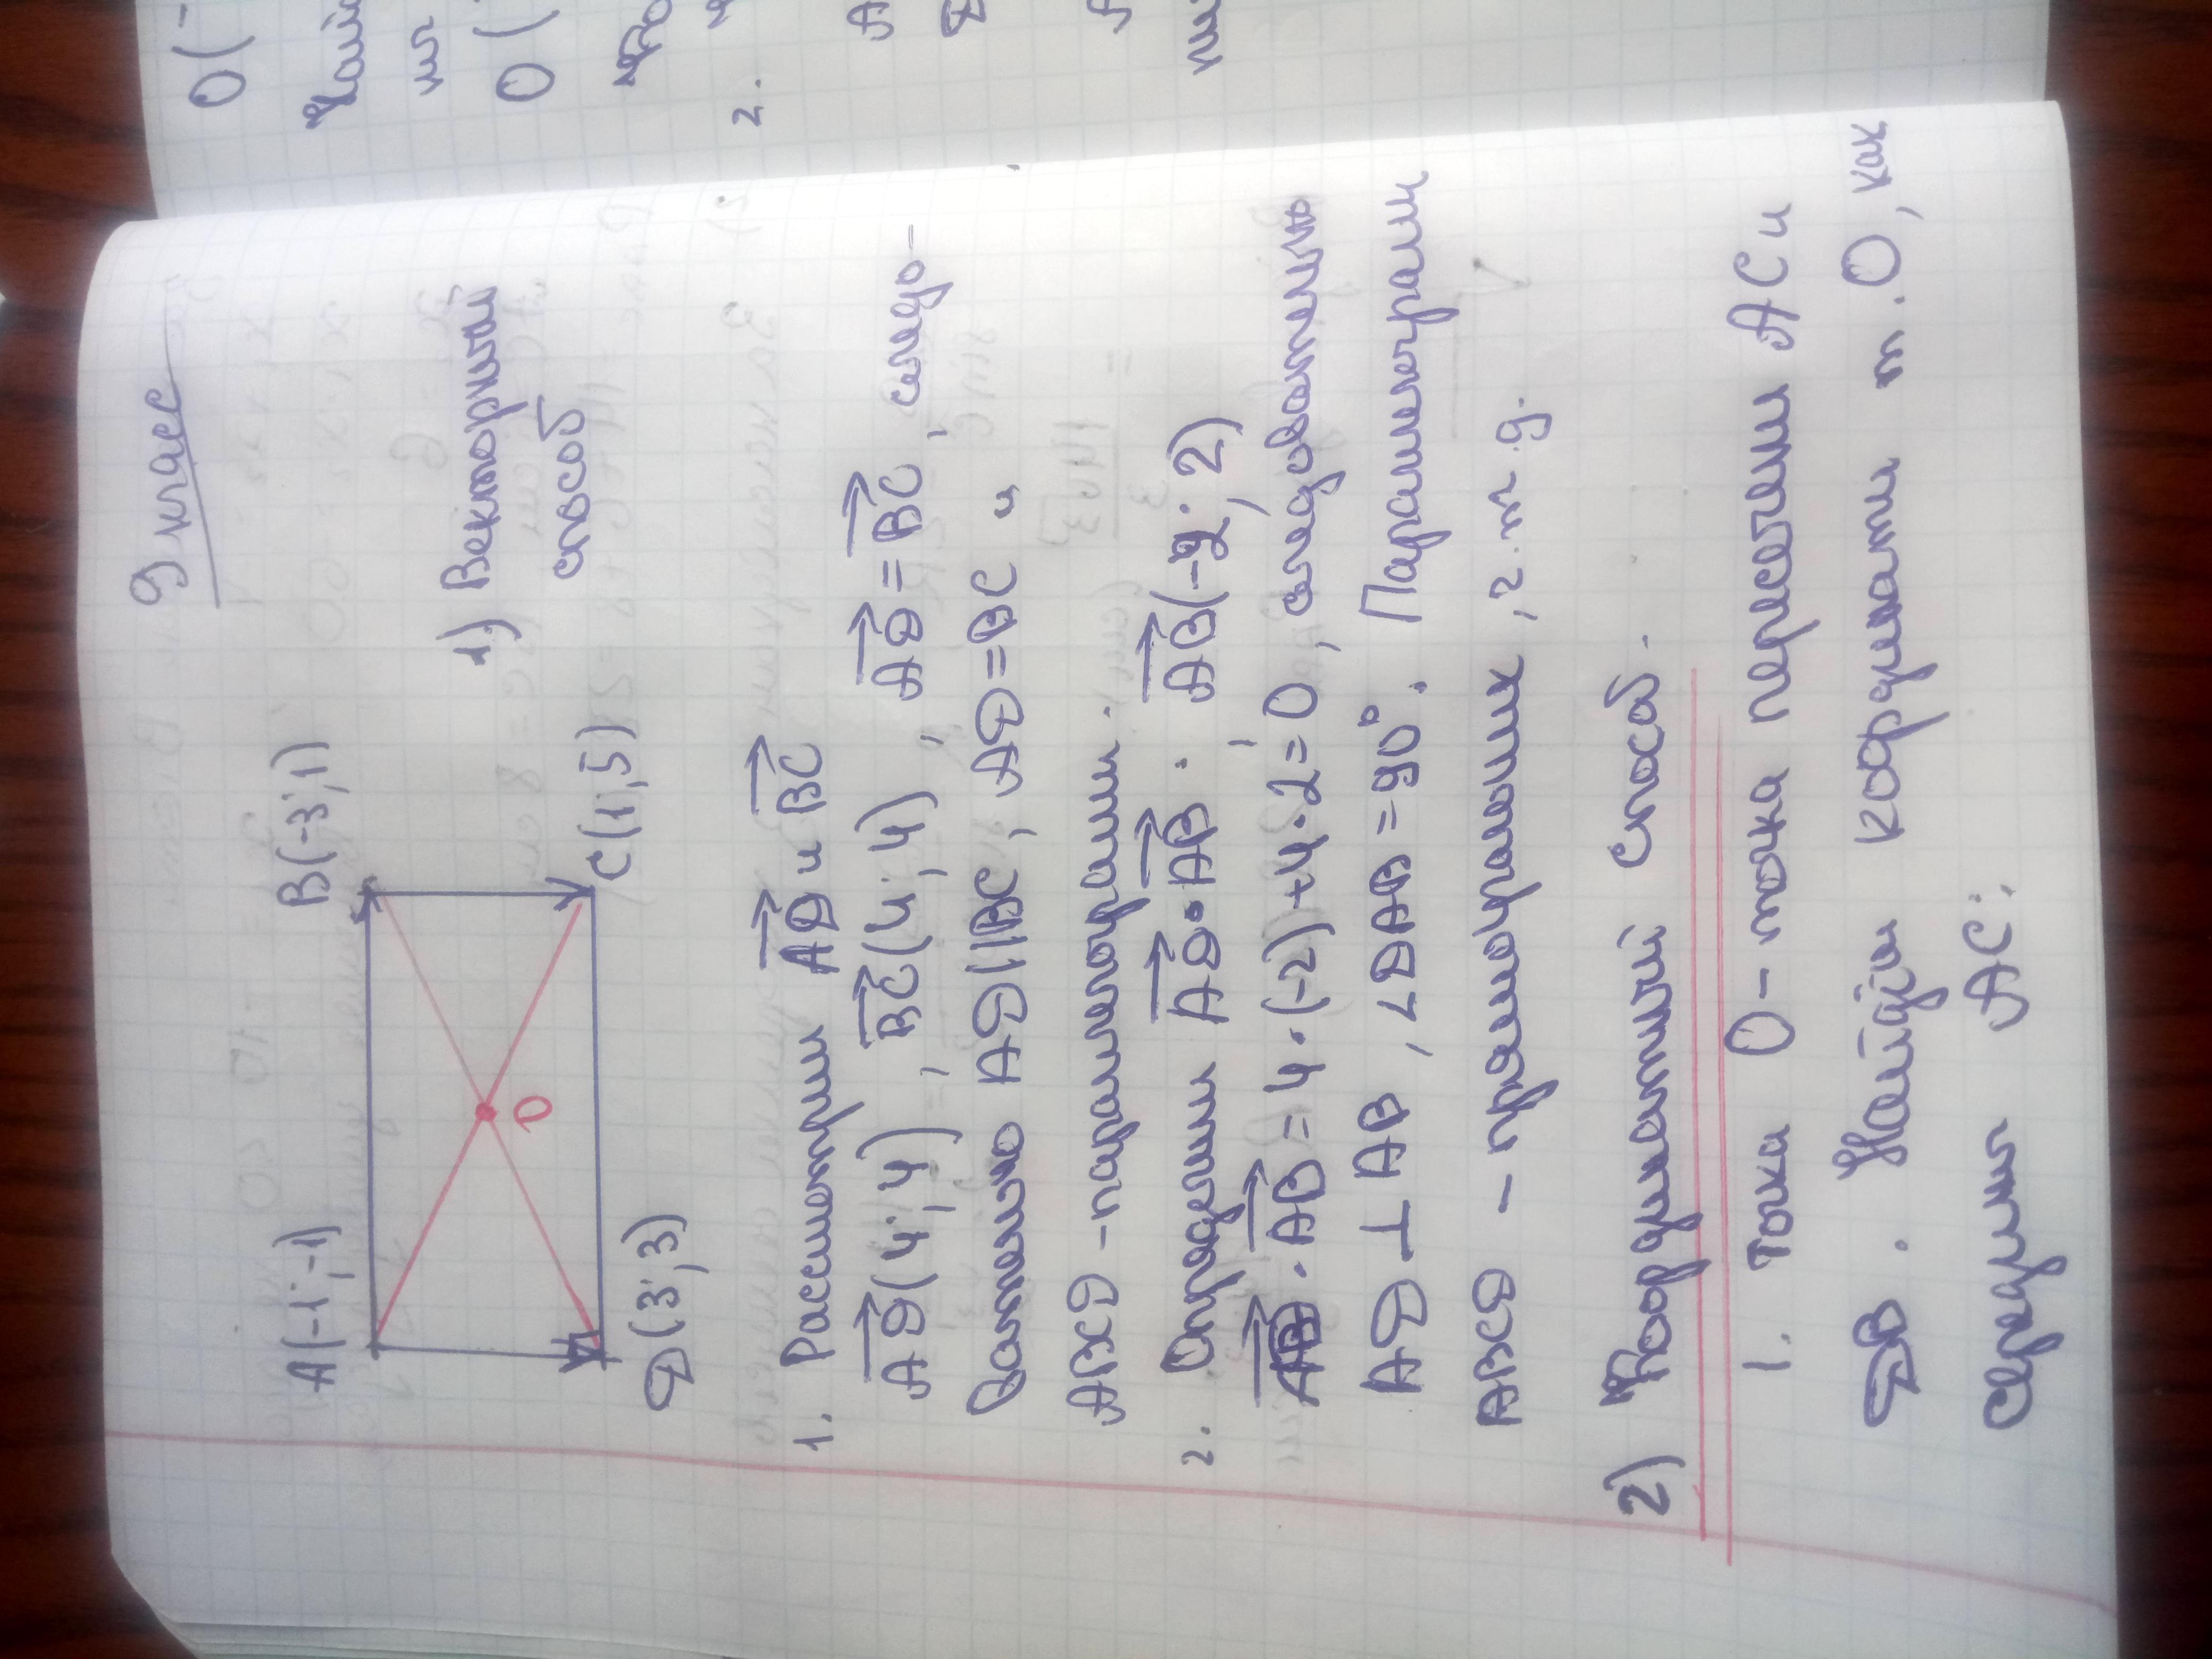 9 класс
A(-1;-1)
B(-3;1)
1) Векторный
способ
O
D(3;3)
C(1;5)
1. Рассмотрим AD и BC
AD(4;4), BC(4;4), AD=BC, следо-
вательно AD||BC, AD=BC и
ABCD - параллелограмм.
2. Определим AD•AB. AB(-2;2)
AD·AB=4·(-2)+4·2=0, следовательно
AD⊥AB, ∠DAB=90°. Параллелограмм
ABCD - прямоугольник, ч.т.д.
2) Координатный способ.
1. Точка O - точка пересечения AC и
DB. Найдём координаты т.O, как
середины AC:
O(-
Найд
O(
2.